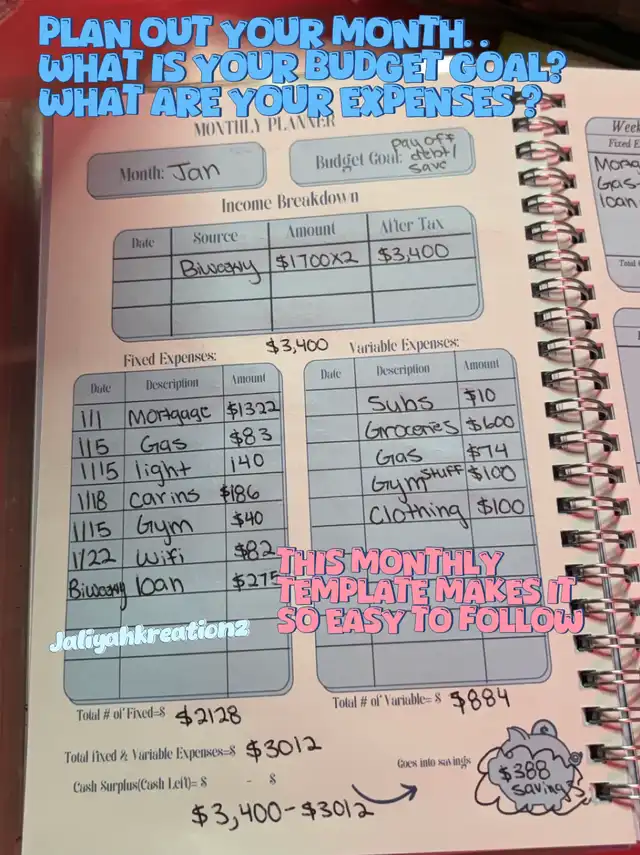 PLAN OUT YOUR MONTH. .
WHAT IS YOUR BUDGET GOAL?
WHAT ARE YOUR EXPENSES ?
MONTHLY PLANNER
Month: Jan
Budget Goal: pay off debt/ save
Income Breakdown
Date Source Amount After Tax
Biweekly $1700x2 $3,400
$3,400
Fixed Expenses:
Date Description Amount
1/1 Mortgage $1322
1/5 Gas $83
1/15 light 140
1/18 car ins $186
1/15 Gym $40
1/22 wifi $82
Biweekly loan $275
Total # of Fixed=$ $2128
Variable Expenses:
Date Description Amount
Subs $10
Groceries $600
Gas $74
Gym stuff $100
Clothing $100
Total # of Variable= $ $884
THIS MONTHLY
TEMPLATE MAKES IT
SO EASY TO FOLLOW
Jaliyahkreationz
Total Fixed & Variable Expenses=$ $3012
Cash Surplus(Cash Left)= $ - $
$3,400-$3012
Goes into savings
$388
saving
Week
Fixed E
Mortga
Gas
loan
Total